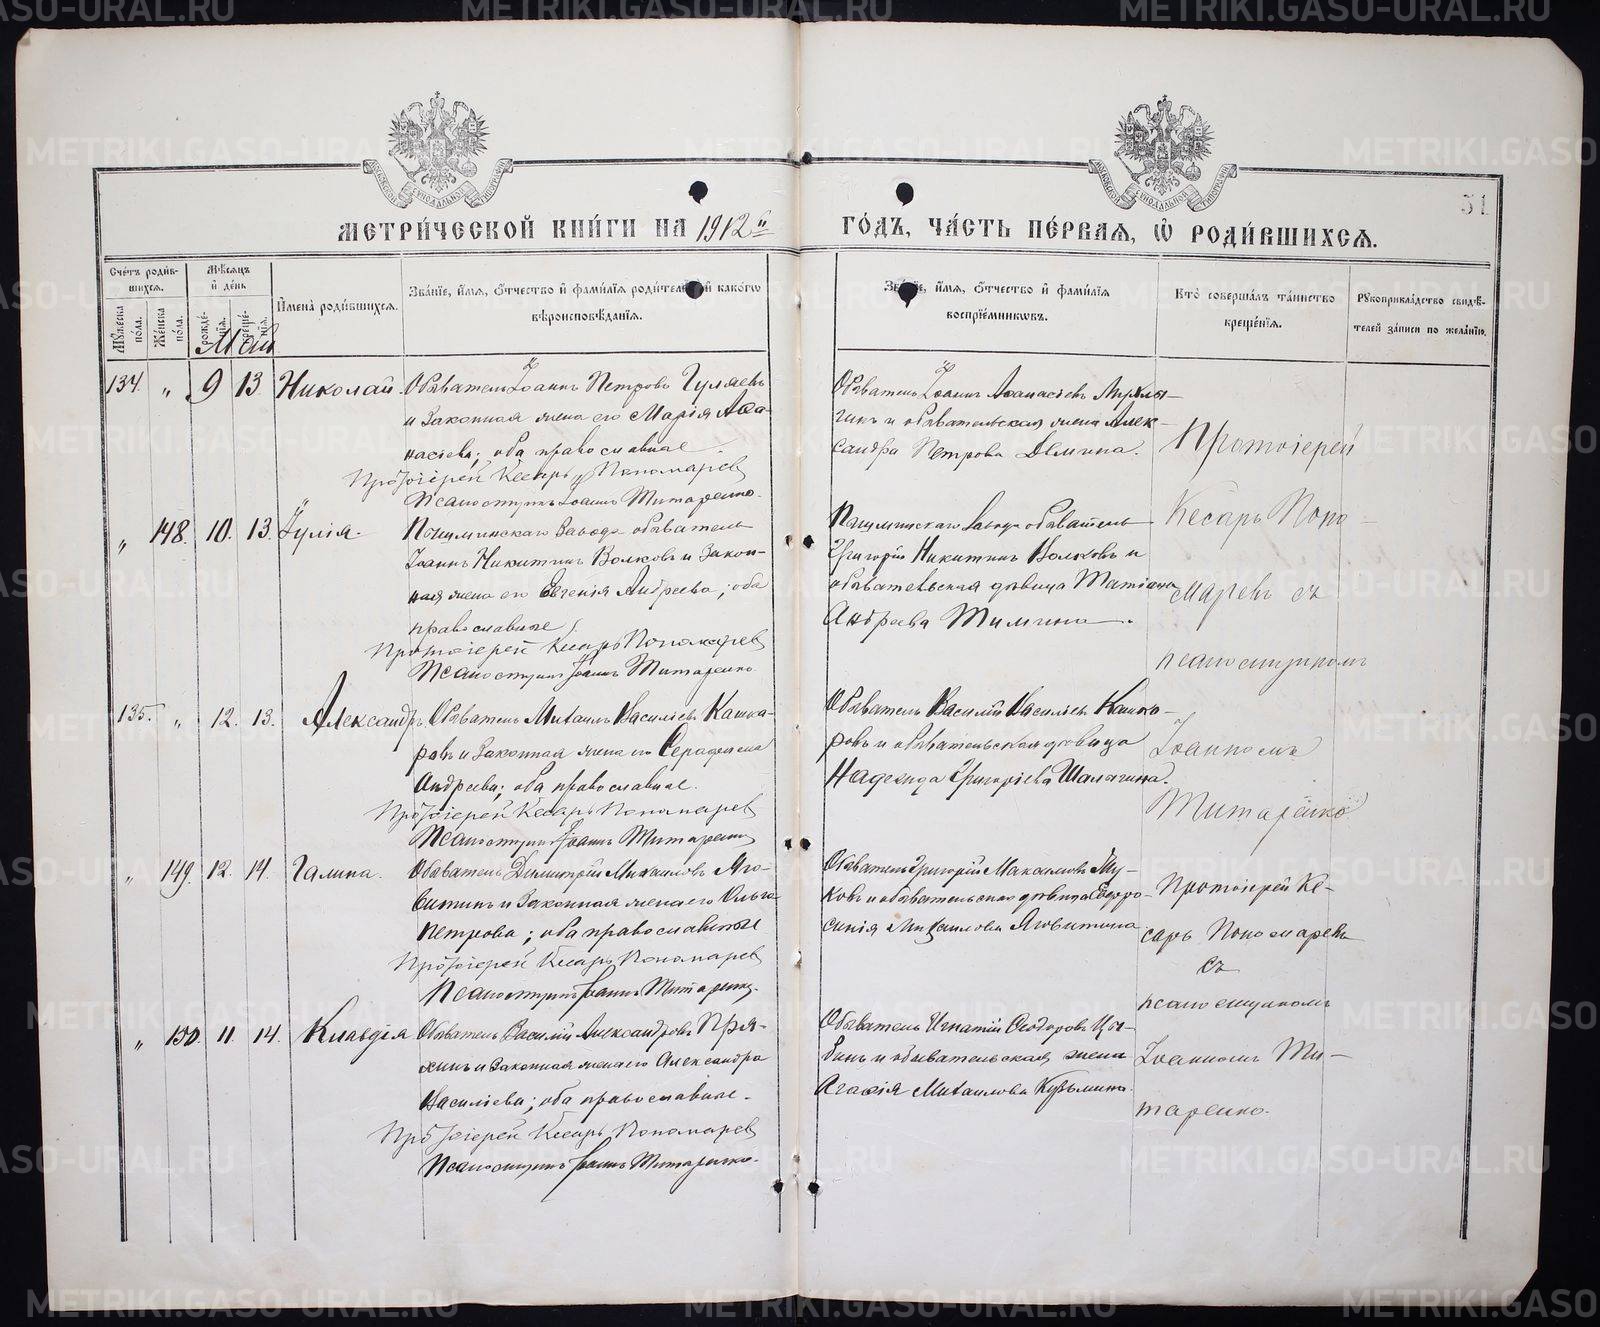 31
МЕТРИЧЕСКОЙ КНИГИ НА 1912й ГОДЪ, ЧАСТЬ ПЕРВАЯ, Ѡ РОДИВШИХСЯ.
Счетъ родившихся.
Мужеска пола.
Женска пола.
Мѣсяцъ и день
рожденія.
крещенія.
Имена родившихся.
Званіе, имя, отчество и фамилія родителей и какого вѣроисповѣданія.
Званіе, имя, отчество и фамилія воспріемниковъ.
Кто совершалъ таинство крещенія.
Рукоприкладство свидѣтелей записи по желанію.
Май
134. „ 9 13 Николай.
Обыватель Іоаннъ Петровъ Гуляевъ
и законная жена его Марія Аѳа-
насіева; оба православные.
Протоіерей Кесарь Пономарев
Псаломщикъ Іоаннъ Титаренко.
Обыватель Іоаннъ Аѳанасіевъ
и обывательская жена Алек-
сандра Петрова Демина.
„ 148. 10. 13. Іулія.
Пышминскаго Завода обыватель
Іоаннъ Никитинъ Волковъ и закон-
ная жена его Евгенія Андреева; оба
православные.
Протоіерей Кесарь Пономарев
Псаломщикъ Іоаннъ Титаренко
Пышминскаго Завода обыватель
Григорій Никитинъ Волковъ и
обывательская дѣвица Татіана
Андреева Тимина.
Протоіерей
Кесарь Поно-
маревъ съ
псаломщикомъ
Іоанномъ
Титаренко
135. „ 12. 13. Александръ
Обыватель Михаилъ Василіевъ Кашка-
ровъ и законная жена его Серафима
Андреева; оба православные.
Протоіерей Кесарь Пономарев
Псаломщикъ Іоаннъ Титаренко
Обыватель Василій Василіевъ Кашка-
ровъ и обывательская дѣвица
Надежда Григоріева Шалягина.
„ 149. 12. 14. Галина.
Обыватель Димитрій Михаиловъ Яго-
витинъ и законная жена его Ольга
Петрова; оба православные
Протоіерей Кесарь Пономарев
Псаломщикъ Іоаннъ Титаренко.
Обыватель Григорій Максимовъ
и обывательская дѣвица Евфро-
синія Михаилова Яговитина
Протоіерей Ке-
сарь Пономаревъ
съ
псаломщикомъ
Іоанномъ Ти-
таренко.
„ 150. 11. 14. Клавдія
Обыватель Василій Александровъ Пря-
хинъ и законная жена его Александра
Василіева; оба православные.
Протоіерей Кесарь Пономарев
Псаломщикъ Іоаннъ Титаренко.
Обыватель Игнатій Ѳеодоровъ Цы-
бинъ и обывательская жена
Агаѳія Михаилова Кузьмина.
METRIKI.GASO-URAL.RU